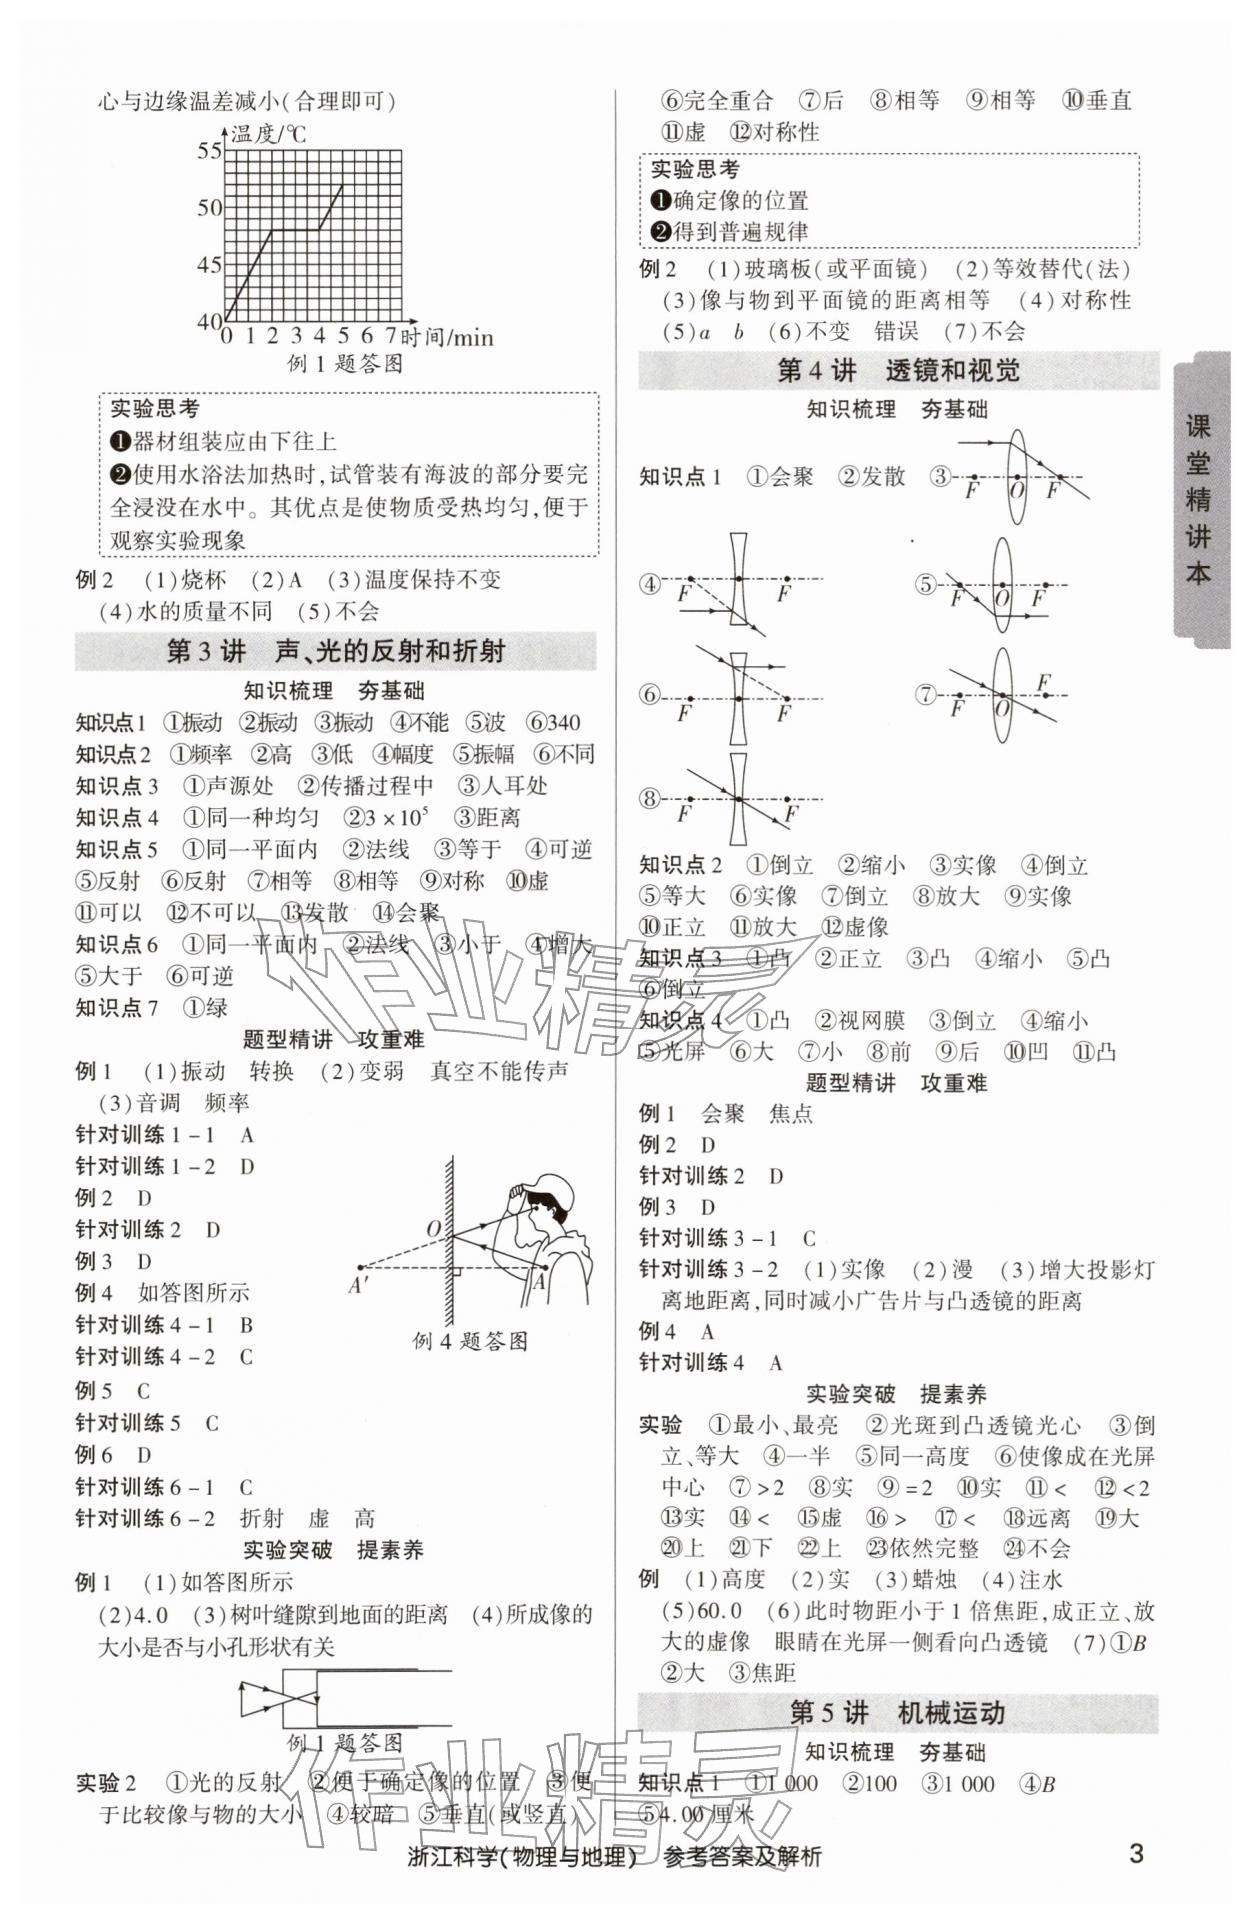 心与边缘温差减小(合理即可)
温度/℃
55
50
45
40
0 1 2 3 4 5 6 7 时间/min
例 1 题答图
实验思考
❶器材组装应由下往上
❷使用水浴法加热时,试管装有海波的部分要完
全浸没在水中。其优点是使物质受热均匀,便于
观察实验现象
例 2 (1)烧杯 (2)A (3)温度保持不变
(4)水的质量不同 (5)不会
第 3 讲 声、光的反射和折射
知识梳理 夯基础
知识点 1 ①振动 ②振动 ③振动 ④不能 ⑤波 ⑥340
知识点 2 ①频率 ②高 ③低 ④幅度 ⑤振幅 ⑥不同
知识点 3 ①声源处 ②传播过程中 ③人耳处
知识点 4 ①同一种均匀 ②3×10⁵ ③距离
知识点 5 ①同一平面内 ②法线 ③等于 ④可逆
⑤反射 ⑥反射 ⑦相等 ⑧相等 ⑨对称 ⑩虚
⑪可以 ⑫不可以 ⑬发散 ⑭会聚
知识点 6 ①同一平面内 ②法线 ③小于 ④增大
⑤大于 ⑥可逆
知识点 7 ①绿
题型精讲 攻重难
例 1 (1)振动 转换 (2)变弱 真空不能传声
(3)音调 频率
针对训练 1-1 A
针对训练 1-2 D
例 2 D
针对训练 2 D
例 3 D
例 4 如答图所示
针对训练 4-1 B
针对训练 4-2 C
O
A′
A
例 4 题答图
例 5 C
针对训练 5 C
例 6 D
针对训练 6-1 C
针对训练 6-2 折射 虚 高
实验突破 提素养
例 1 (1)如答图所示
(2)4.0 (3)树叶缝隙到地面的距离 (4)所成像的
大小是否与小孔形状有关
例 1 题答图
实验 2 ①光的反射 ②便于确定像的位置 ③便
于比较像与物的大小 ④较暗 ⑤垂直(或竖直)
⑥完全重合 ⑦后 ⑧相等 ⑨相等 ⑩垂直
⑪虚 ⑫对称性
实验思考
❶确定像的位置
❷得到普遍规律
例 2 (1)玻璃板(或平面镜) (2)等效替代(法)
(3)像与物到平面镜的距离相等 (4)对称性
(5)a b (6)不变 错误 (7)不会
第 4 讲 透镜和视觉
知识梳理 夯基础
知识点 1 ①会聚 ②发散 ③
F O F
④ F F
⑤ F O F
⑥ F F
⑦ F O F
⑧ F F
知识点 2 ①倒立 ②缩小 ③实像 ④倒立
⑤等大 ⑥实像 ⑦倒立 ⑧放大 ⑨实像
⑩正立 ⑪放大 ⑫虚像
知识点 3 ①凸 ②正立 ③凸 ④缩小 ⑤凸
⑥倒立
知识点 4 ①凸 ②视网膜 ③倒立 ④缩小
⑤光屏 ⑥大 ⑦小 ⑧前 ⑨后 ⑩凹 ⑪凸
题型精讲 攻重难
例 1 会聚 焦点
例 2 D
针对训练 2 D
例 3 D
针对训练 3-1 C
针对训练 3-2 (1)实像 (2)漫 (3)增大投影灯
离地距离,同时减小广告片与凸透镜的距离
例 4 A
针对训练 4 A
实验突破 提素养
实验 ①最小、最亮 ②光斑到凸透镜光心 ③倒
立、等大 ④一半 ⑤同一高度 ⑥使像成在光屏
中心 ⑦>2 ⑧实 ⑨=2 ⑩实 ⑪< ⑫<2
⑬实 ⑭< ⑮虚 ⑯> ⑰< ⑱远离 ⑲大
⑳上 ㉑下 ㉒上 ㉓依然完整 ㉔不会
例 (1)高度 (2)实 (3)蜡烛 (4)注水
(5)60.0 (6)此时物距小于 1 倍焦距,成正立、放
大的虚像 眼睛在光屏一侧看向凸透镜 (7)①B
②大 ③焦距
第 5 讲 机械运动
知识梳理 夯基础
知识点 1 ①1 000 ②100 ③1 000 ④B
⑤4.00 厘米
课堂精讲本
作业精灵
作业精灵
浙江科学(物理与地理) 参考答案及解析
3